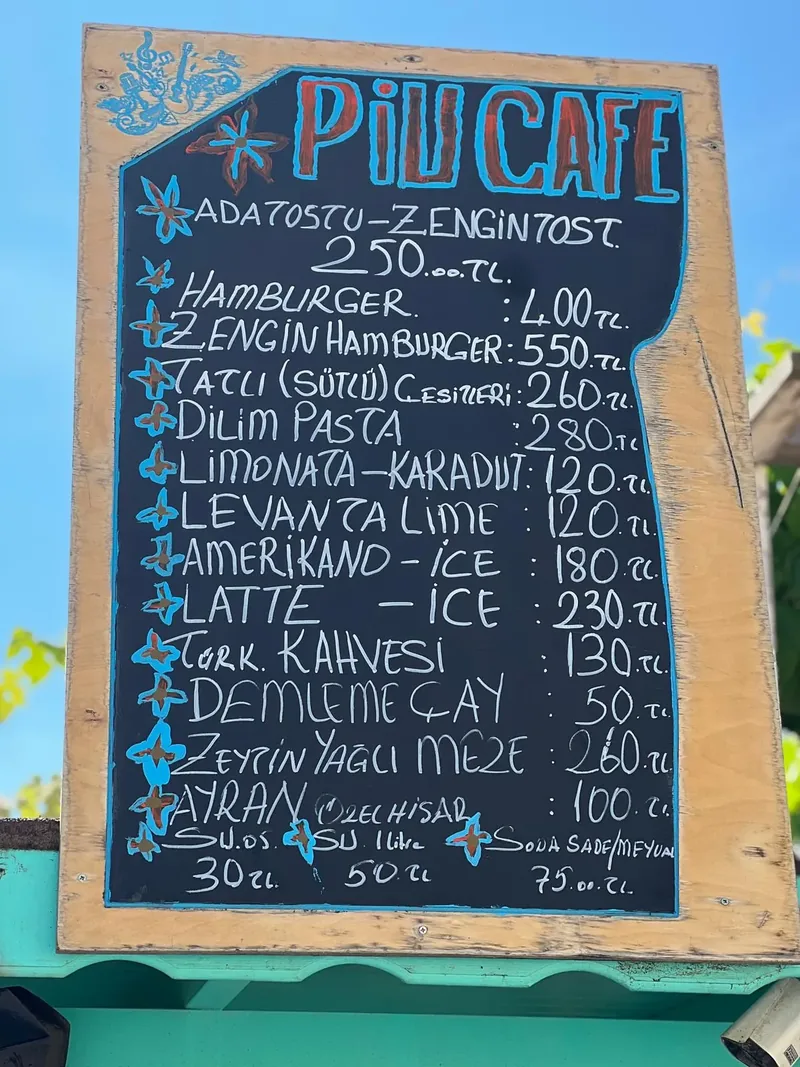 PiU CAFE
ADA TOSTU - ZENGİN TOST.
250.00 TL.
HAMBURGER. : 400 TL.
ZENGİN HAMBURGER : 550.TL.
TATLI (SÜTLÜ) ÇEŞİTLERİ : 260.TL.
DİLİM PASTA : 280.TL
LİMONATA - KARADUT : 120.TL.
LEVANTA LİME : 120.TL.
AMERİKANO - İCE : 180.TL.
LATTE - İCE : 230.TL.
TÜRK. KAHVESİ : 130.TL.
DEMLEME ÇAY : 50.TL
ZEYTİN YAĞLI MEZE : 260.TL
AYRAN ÖZEL HİSAR : 100.TL
SU.05. SU 1 litre SODA SADE/MEYVALI
30 TL. 50.TL 75.00.TL